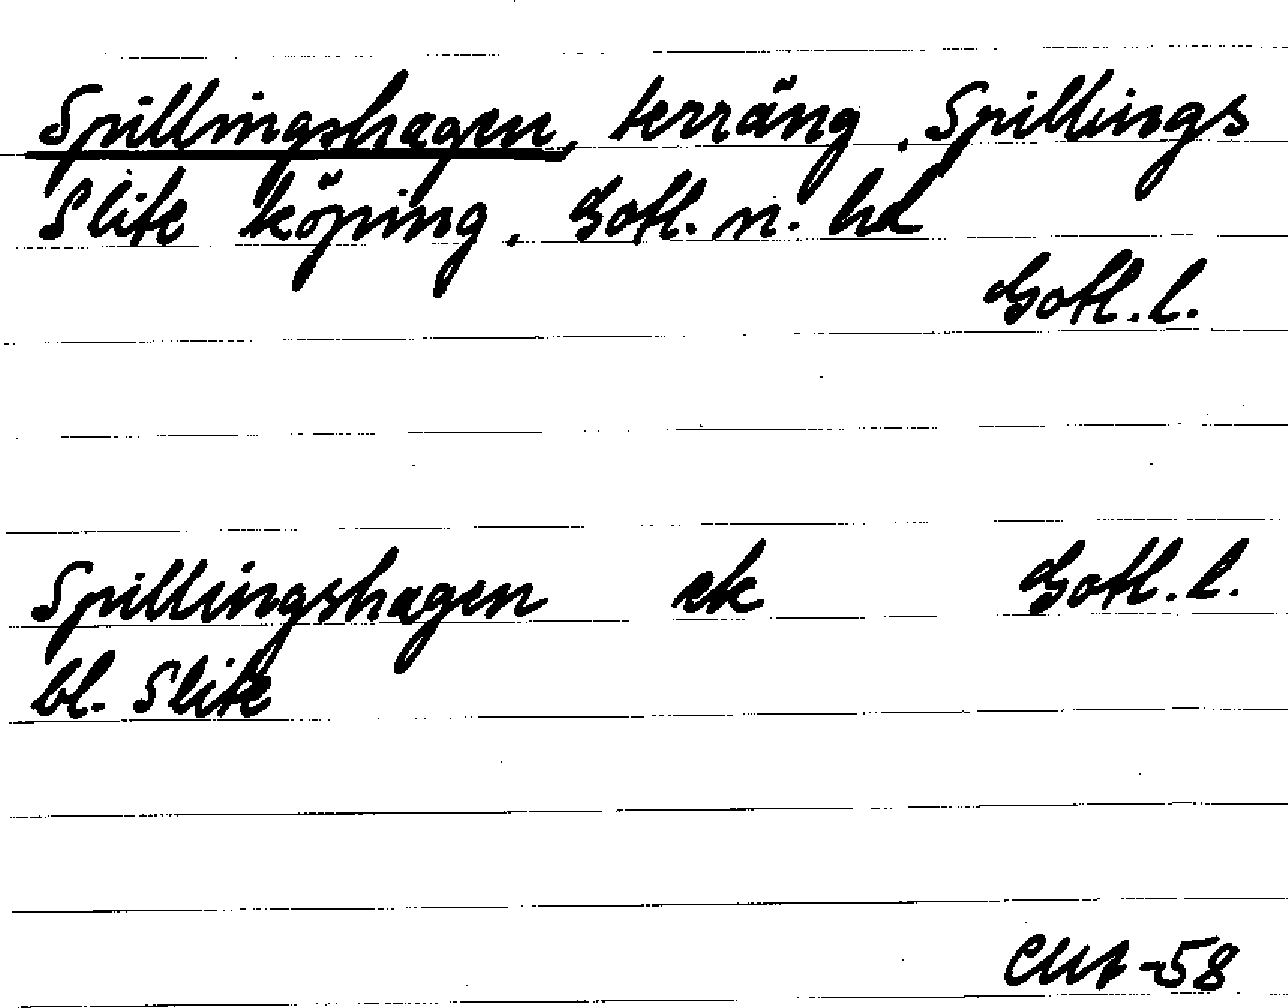 Spillingshagen, terräng, Spillings
Slite köping, Gotl. n. hd
Gotl. l.
Spillingshagen ek Gotl. l.
bl. Slite
-58